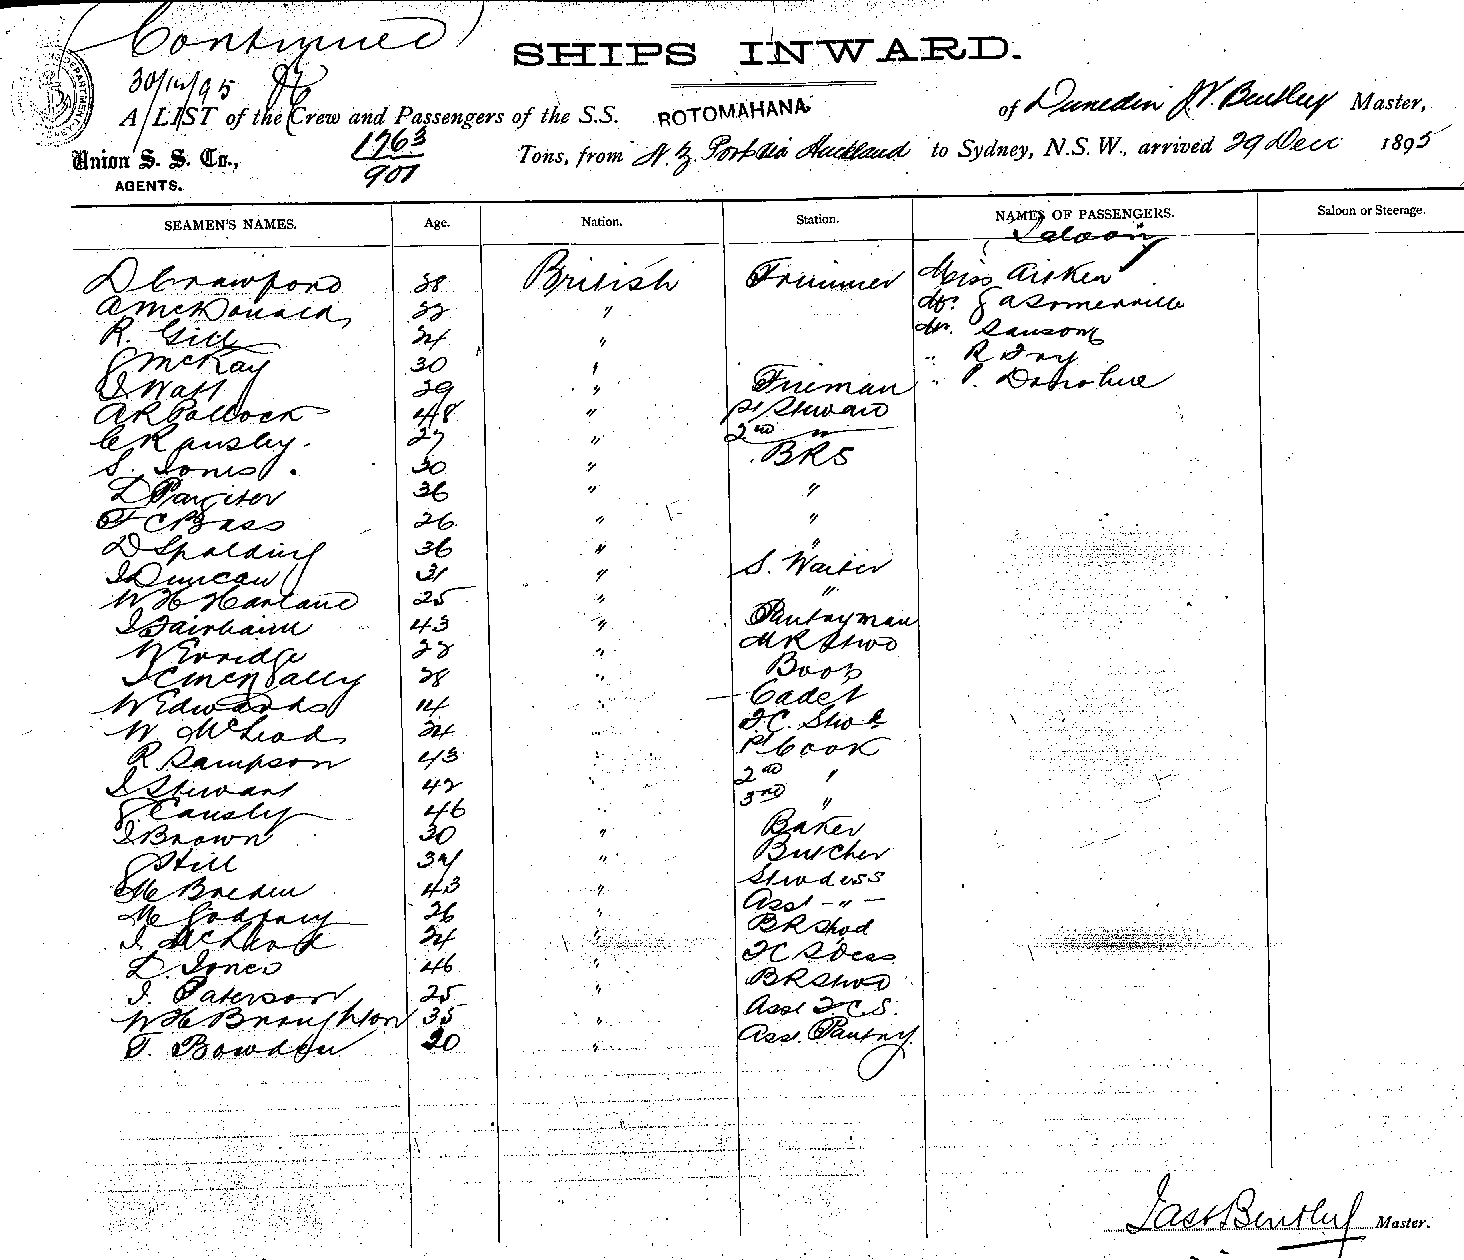 Continued
30/12/95
SHIPS INWARD.
A LIST of the Crew and Passengers of the S.S. ROTOMAHANA of Dunedin J.V. Bentley Master,
Union S. S. Co., AGENTS.
1763
901
Tons, from N.Z. Port via Auckland to Sydney, N.S.W., arrived 29 Dec 1895
SEAMEN'S NAMES. Age. Nation. Station. NAMES OF PASSENGERS. Saloon or Steerage.
Saloon
D Crawford 28 British Trimmer Miss Aitken
A McDonald 22 " Mr. G A Somerville
R. Gill 24 " Mr. Sansom
J McKay 30 " " R Fry
J Watt 29 " Fireman " P. Donohue
A R Pollock 48 " Steward
C Ransley. 27 " 2nd "
S. Jones. 30 " BRS
D Pargiter 36 " "
F C Bass 26 " "
D Spalding 36 " "
J Duncan 31 " S. Waiter
W H Harland 25 " "
J Fairbairn 43 " Pantryman
W Erridge 22 " M R Stwd
J C McNally 28 " Boots
W Edwards 14 " Cadet
W McLeod 24 "
R Sampson 43 " Cook
J Stewart 42 " 2nd "
J Causley 46 " 3rd "
J Brown 30 " Baker
J Still 34 " Butcher
M Breden 43 " Stwdess
M Godfrey 26 " Asst - " -
J. 24 " BR
L. Jones 46 "
J. Paterson 25 " BR Stwd
W H Broughton 35 "
T. Bowden 20 " Asst. Pantry
Jas V Bentley Master.